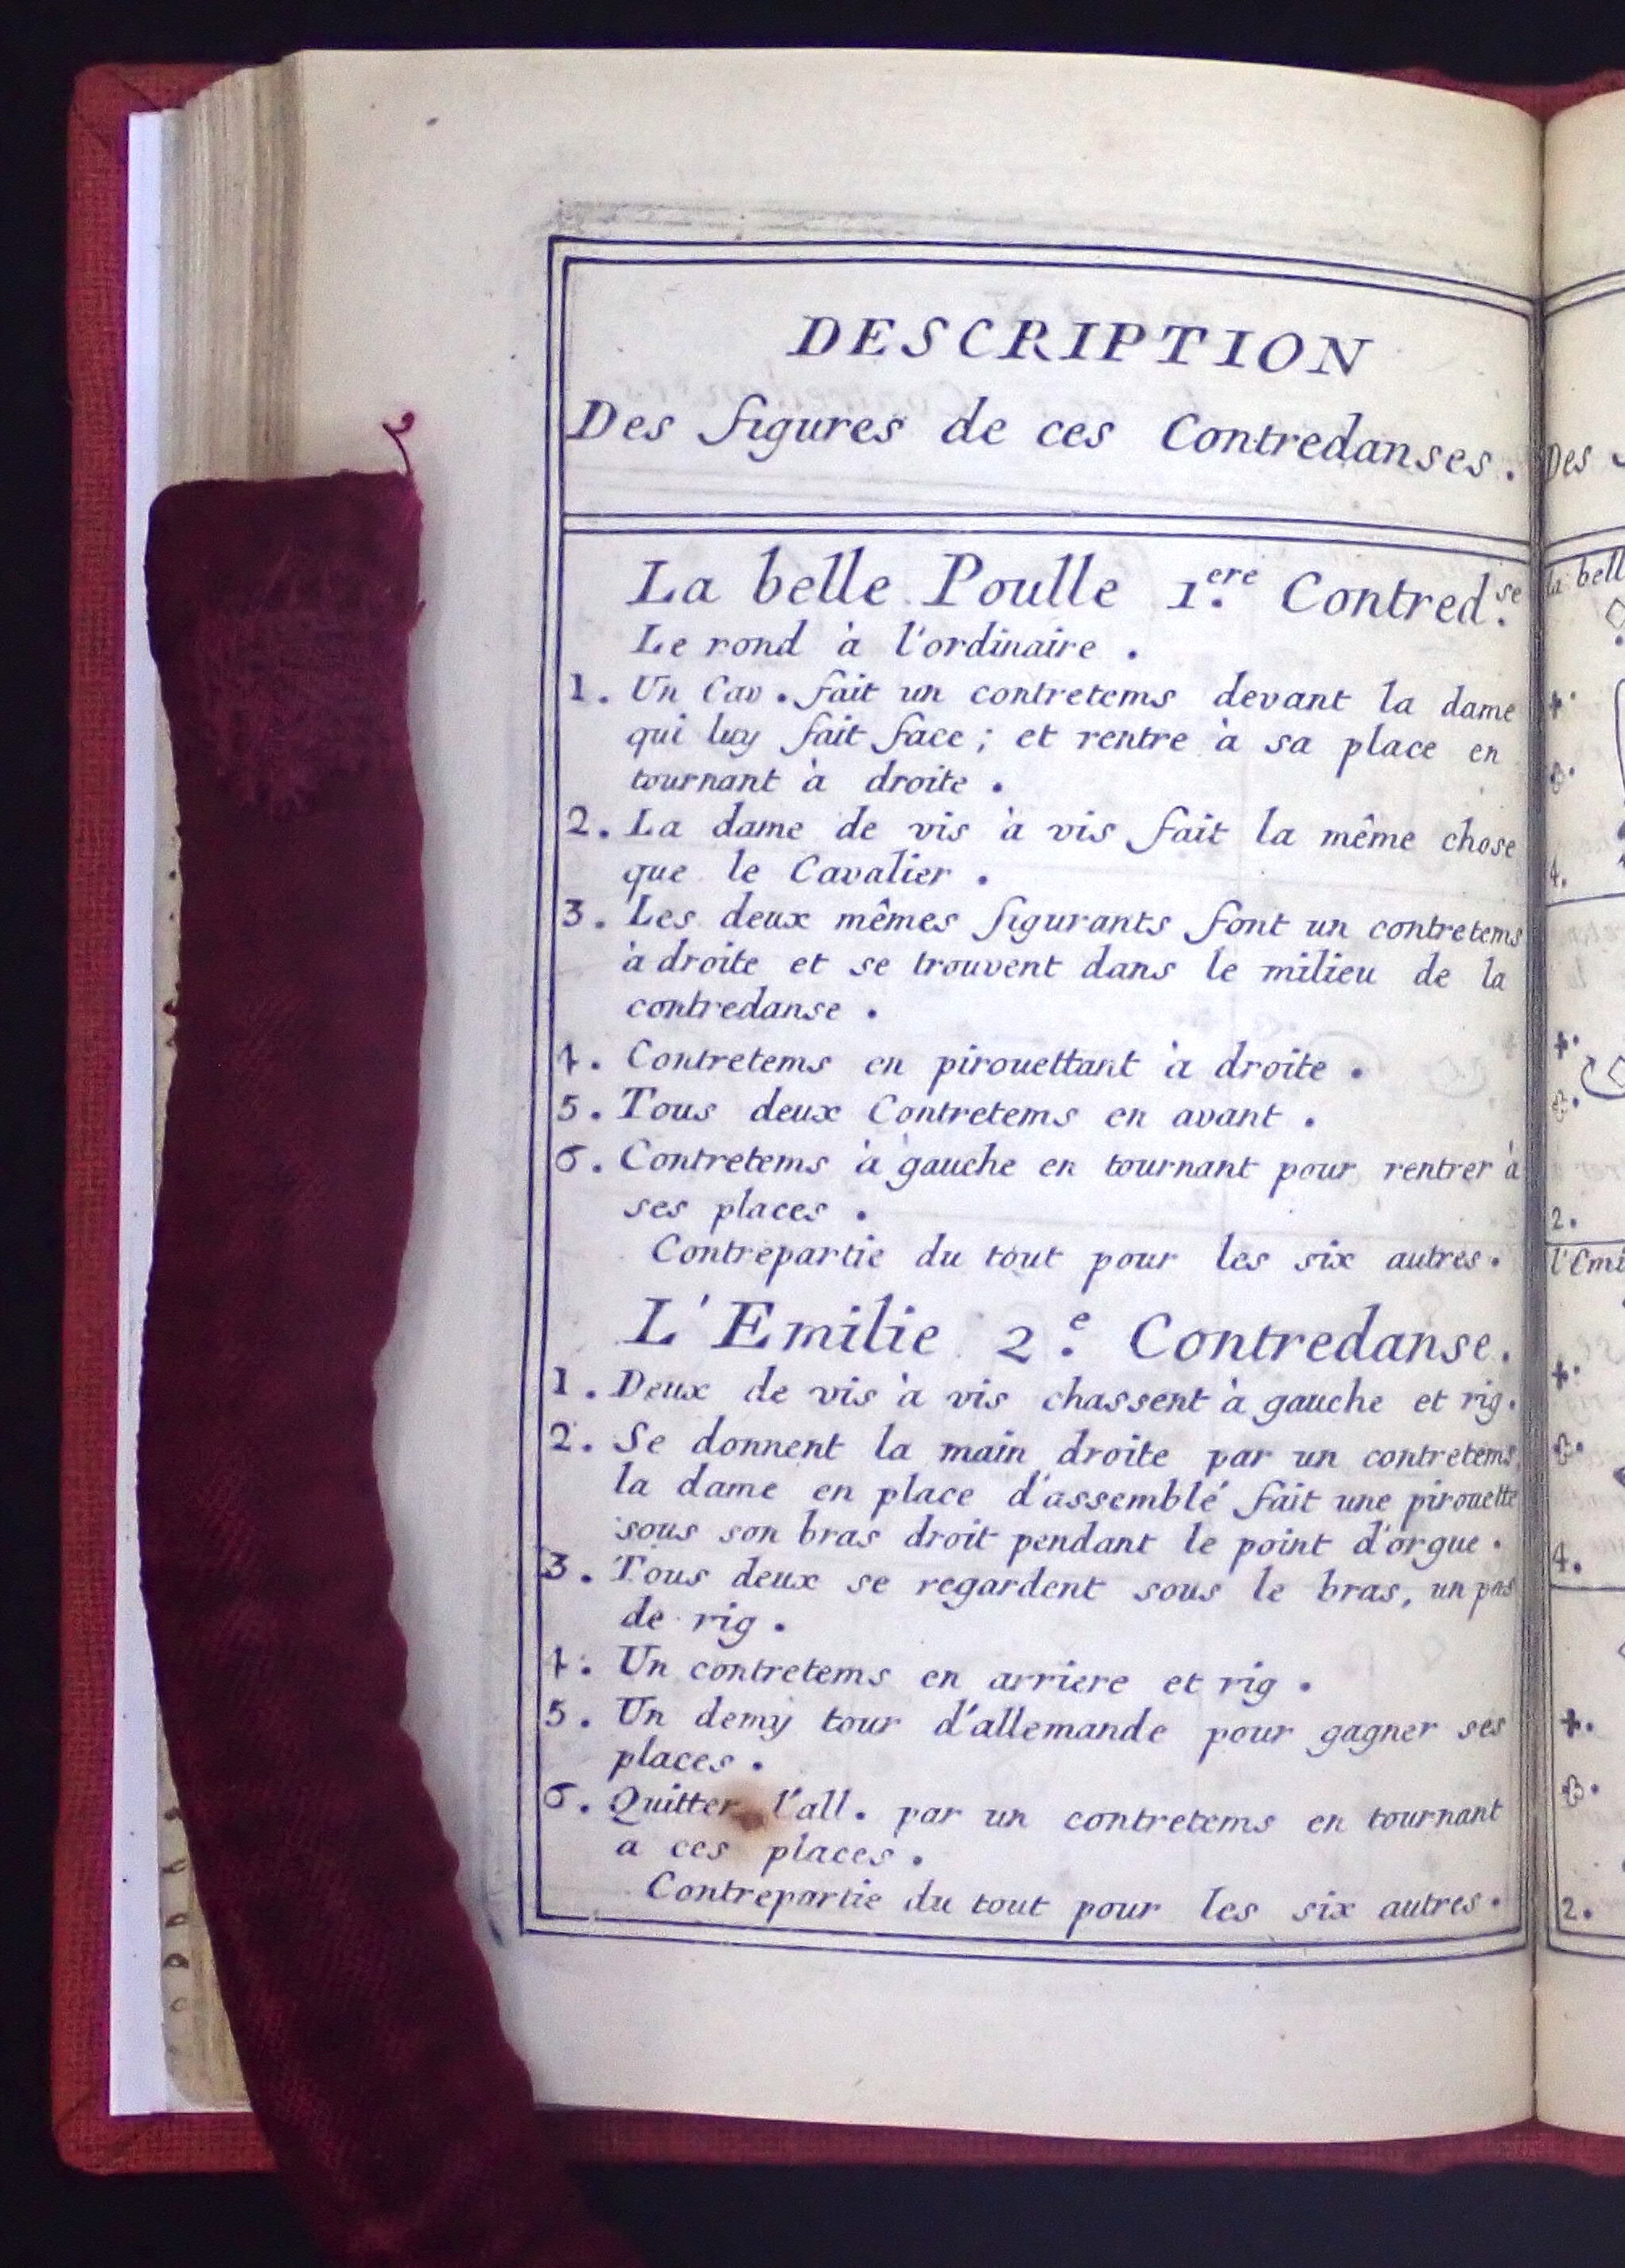 DESCRIPTION
Des figures de ces Contredanses.
La belle Poulle 1.ere Contred.se
Le rond à l'ordinaire.
1. Un Cav. fait un contretems devant la dame
qui luy fait face; et rentre à sa place en
tournant à droite.
2. La dame de vis à vis fait la même chose
que le Cavalier.
3. Les deux mêmes figurants font un contretems
à droite et se trouvent dans le milieu de la
contredanse.
4. Contretems en pirouettant à droite.
5. Tous deux Contretems en avant.
6. Contretems à gauche en tournant pour rentrer à
ses places.
Contrepartie du tout pour les six autres.
L'Emilie 2.e Contredanse.
1. Deux de vis à vis chassent à gauche et rig.
2. Se donnent la main droite par un contretems,
la dame en place d'assemblé fait une pirouette
sous son bras droit pendant le point d'orgue.
3. Tous deux se regardent sous le bras, un pas
de rig.
4. Un contretems en arriere et rig.
5. Un demy tour d'allemande pour gagner ses
places.
6. Quitter l'all. par un contretems en tournant
a ces places.
Contrepartie du tout pour les six autres.
Des
la bell
4.
2.
l'Emi
4.
2.